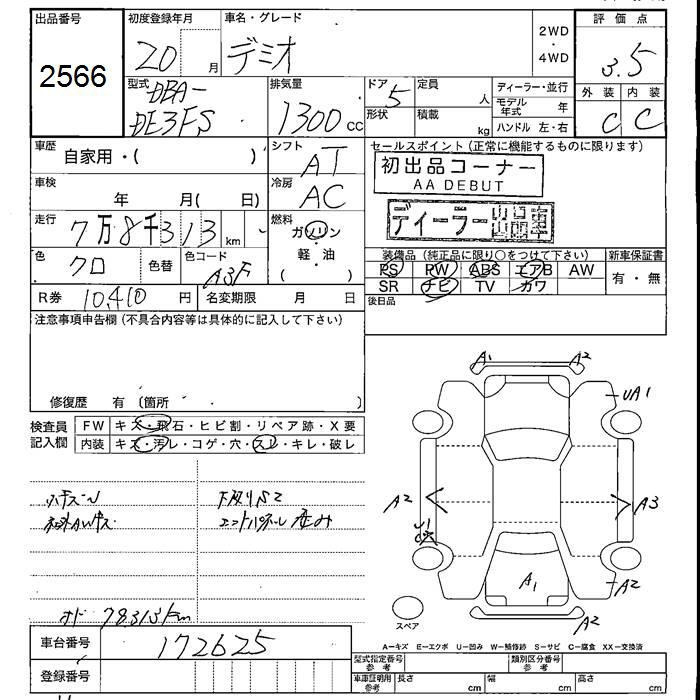 出品番号
2566
初度登録年月
20 月
車名・グレード
デミオ
2WD
・
4WD
評価点
3.5
型式
DBA-
DE3FS
排気量
1300 cc
ドア
5
形状
定員
人
積載
kg
ディーラー・並行
モデル年式 年
ハンドル 左・右
外装
C
内装
C
車歴
自家用・( )
シフト
AT
セールスポイント(正常に機能するものに限ります)
初出品コーナー
AA DEBUT
ディーラー
車検
年 月( 日)
冷房
AC
走行
7万8千313 km
燃料
ガソリン
・
軽・油
( )
色
クロ
色替
色コード
A3F
装備品(純正品に限り○をつけて下さい)
PS PW ABS エアB AW
SR ナビ TV カワ
新車保証書
有・無
R券 10,410 円
名変期限 月 日
後日品
注意事項申告欄(不具合内容等は具体的に記入して下さい)
修復歴 有 (箇所 )
検査員
記入欄
FW キズ・飛石・ヒビ割・リペア跡・X要
内装 キズ・汚レ・コゲ・穴・スレ・キレ・破レ
下廻りS2
エンドパネル歪み
78313km
A1 A2
UA1
A2
A3
U1
A1
A2
A2
スペア
車台番号
172625
登録番号
A―キズ E―エクボ U―凹み W―補修跡 S―サビ C―腐食 XX―交換済
型式指定番号
参考
類別区分番号
参考
車庫証明用
参考
長さ cm
幅 cm
高さ cm